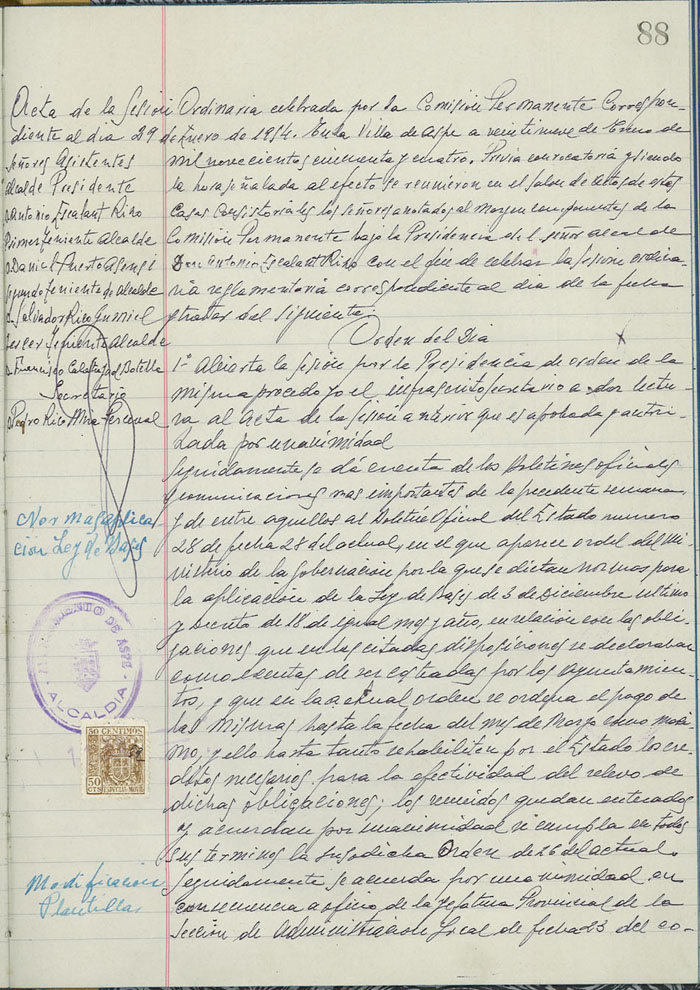 88
Acta de la Sesion Ordinaria celebrada por la Comision Permanente Correspon-
diente al dia 29 de Enero de 1954. En la Villa de Aspe a veintinueve de Enero de
Señores Asistentes
mil novecientos cincuenta y cuatro. Previa convocatoria y siendo
Alcalde Presidente
la hora señalada al efecto se reunieron en el Salon de Actos de estas
D. Antonio Escalant Rico
Casas Consistoriales los señores anotados al margen componentes de la
Primer Teniente Alcalde
Comision Permanente bajo la Presidencia del señor alcalde
D. Daniel Puerto Asensi
Don Antonio Escalant Rico con el fin de celebrar la sesion ordina-
Segundo teniente de alcalde
ria reglamentaria correspondiente al dia de la fecha
D. Salvador Rico Gumiel
y tratar del siguiente.
Tercer Teniente Alcalde
Orden del Dia
D. Francisco Calatayud Botella
1º Abierta la sesion por la Presidencia de orden de la
Secretario
misma procedo yo el infrascrito secretario a dar lectu-
Pedro Rico Mira Pascual
ra al Acta de la sesion anterior que es aprobada y autori-
zada por unanimidad
Seguidamente se dá cuenta de los Boletines oficiales
y comunicaciones mas importantes de la precedente semana
Normas aplica
y de entre aquellos al Boletin Oficial del Estado numero
cion Ley de Bases
28 de fecha 28 del actual, en el que aparece orden del Mi
nisterio de la Gobernacion por la que se dictan normas para
la aplicacion de la Ley de Bases de 3 de Diciembre ultimo
y Decreto de 18 de igual mes y año, en relacion con las obli-
gaciones que en las citadas disposiciones se declaraban
como exentas de ser por los Ayuntamien-
tos, y que en la actual orden se ordena el pago de
las mismas hasta la fecha del mes de Marzo como máxi
mo, y ello hasta tanto se habiliten por el Estado los cre-
ditos necesarios para la efectividad del relevo de
dichas obligaciones; los reunidos quedan enterados
y acuerdan por unanimidad se cumpla en todos
sus terminos la susodicha Orden de 26 del actual.
Modificacion
Seguidamente se acuerda por unanimidad, en
Plantillas
consecuencia a oficio de la Jefatura Provincial de la
Seccion de Administracion Local de fecha 23 del co-
AYUNTAMIENTO DE ASPE
ALCALDIA
50 CENTIMOS
50
CTS
ESPECIAL MOVIL